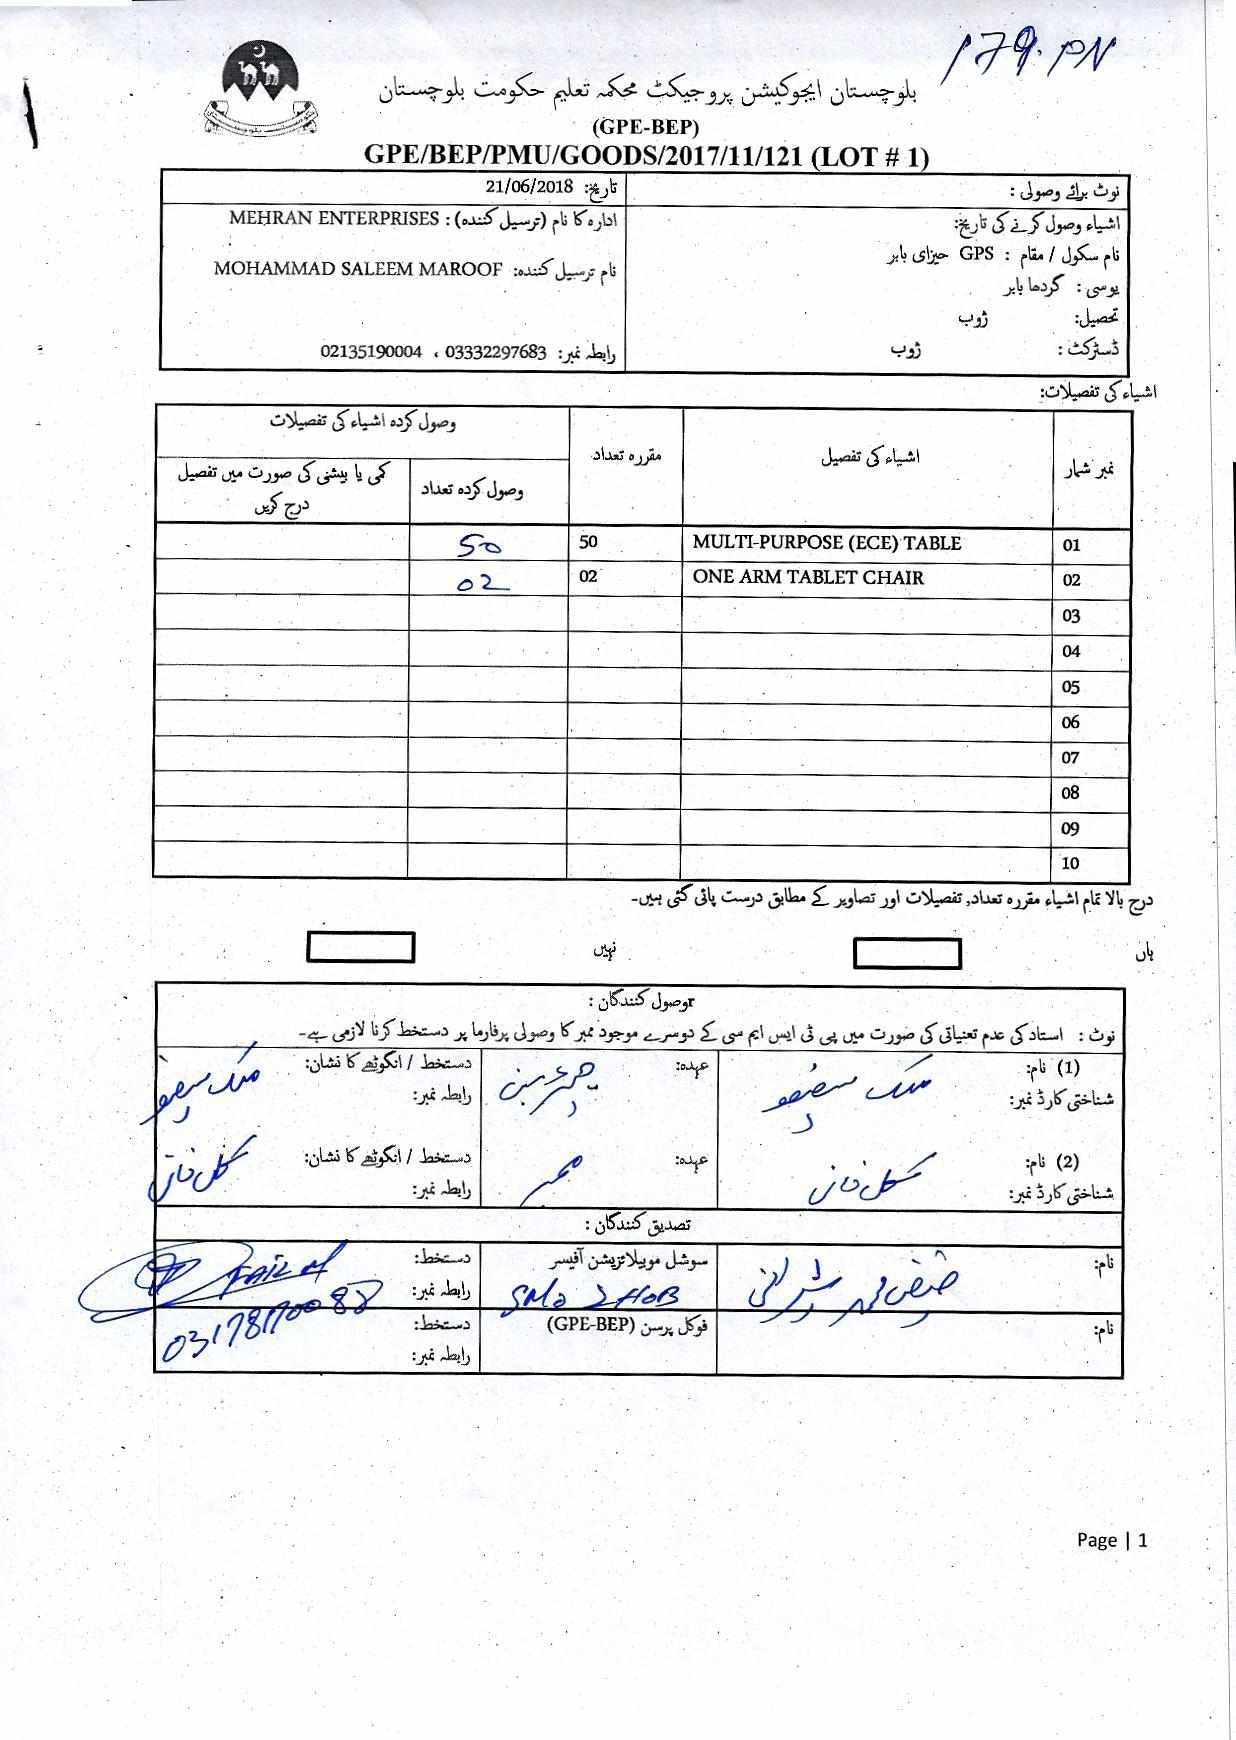 179.PN
بلوچستان ایجوکیشن پروجیکٹ محکمہ تعلیم حکومت بلوچستان
(GPE-BEP)
GPE/BEP/PMU/GOODS/2017/11/121 (LOT # 1)
نوٹ برائے وصولی :
تاریخ: 21/06/2018
اشیاء وصول کرنے کی تاریخ:
نام سکول / مقام : GPS حیزای بابر
یوسی : گردھا بابر
تحصیل: ژوب
ڈسٹرکٹ : ژوب
ادارہ کا نام (ترسیل کنندہ) : MEHRAN ENTERPRISES
نام ترسیل کنندہ: MOHAMMAD SALEEM MAROOF
رابطہ نمبر: 03332297683 ، 02135190004
اشیاء کی تفصیلات:
نمبر شمار اشیاء کی تفصیل مقررہ تعداد وصول کردہ اشیاء کی تفصیلات
وصول کردہ تعداد کمی یا بیشی کی صورت میں تفصیل درج کریں
01 MULTI-PURPOSE (ECE) TABLE 50 50
02 ONE ARM TABLET CHAIR 02 02
03
04
05
06
07
08
09
10
درج بالا تمام اشیاء مقررہ تعداد, تفصیلات اور تصاویر کے مطابق درست پائی گئی ہیں۔
ہاں نہیں
rوصول کنندگان :
نوٹ : استاد کی عدم تعنیاتی کی صورت میں پی ٹی ایس ایم سی کے دوسرے موجود ممبر کا وصولی پرفارما پر دستخط کرنا لازمی ہے۔
(1) نام: عہدہ: چیئرمین دستخط / انگوٹھے کا نشان:
شناختی کارڈ نمبر: رابطہ نمبر:
(2) نام: گل خان عہدہ: ممبر دستخط / انگوٹھے کا نشان: گل خان
شناختی کارڈ نمبر: رابطہ نمبر:
تصدیق کنندگان :
نام: سوشل موبیلائزیشن آفیسر دستخط: FAIZ M
SMO ZHOB رابطہ نمبر: 03178170088
نام: فوکل پرسن (GPE-BEP) دستخط:
رابطہ نمبر:
Page | 1